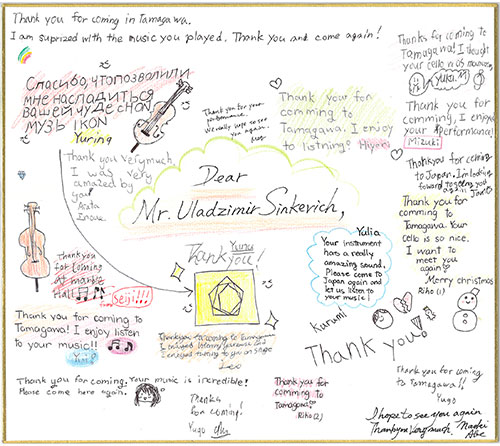 Thank you for coming in Tamagawa.
I am suprized with the music you played. Thank you and come again!
Thanks for coming to
Tamagawa! I thought
your cello is so
Yuki.M
Спасибо, что позволили
мне насладиться
вашей чудесной
музыкой
Yuring
Thank you for your
performance.
We really hope to see
you again.
Thank you for
comming to
Tamagawa. I enjoy
to listning! Miyoki
Thank you for
comming, I enjoyed
your Performance!
Mizuki
Thank you for coming
to Japan. I'm looking
forward to seeing you
again
Thank you Very much.
I was very
amazed by
you
Dear
Mr. Uladzimir Sinkevich,
Thank you for
comming to
Tamagawa. Your
cello is so nice.
I want to
meet you
again
Merry christmas
Riho (1)
Yulia
Your instrument
has a really
amazing sound.
Please come to
Japan again and
let us listen to
your music!
Kurumi
Yunu
Thank you!
Thank you
for coming
at marble
Hall
Seiji!!!
Thank you for coming to
Tamagawa! I enjoy listen
to your music!!
Yui!
Leo
Thank you
Thank you for coming. Your music is incredible!
Please come here again.
Thanks
for coming!
Yugo
Thank you for
comming to
Tamagawa!
Riko (2)
Thank you for coming
to Tamagawa!!
Yugo
I hope to see you again
Thank you very much.
Naoki
Abe